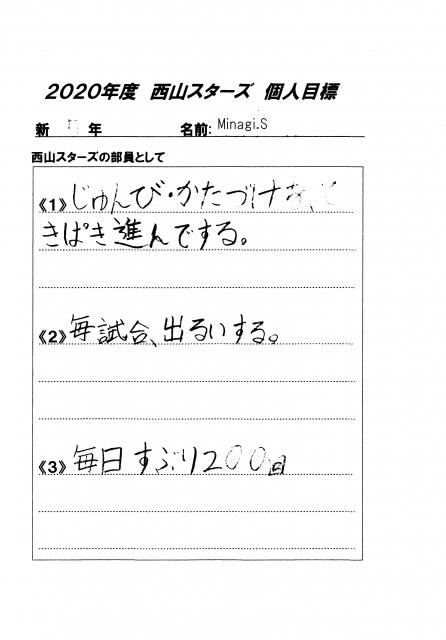 2020年度 西山スターズ 個人目標
新 年 名前: Minagi.S
西山スターズの部員として
《1》じゅんび・かたづけを、て
きぱき進んでする。
《2》毎試合、出るいする。
《3》毎日すぶり200回